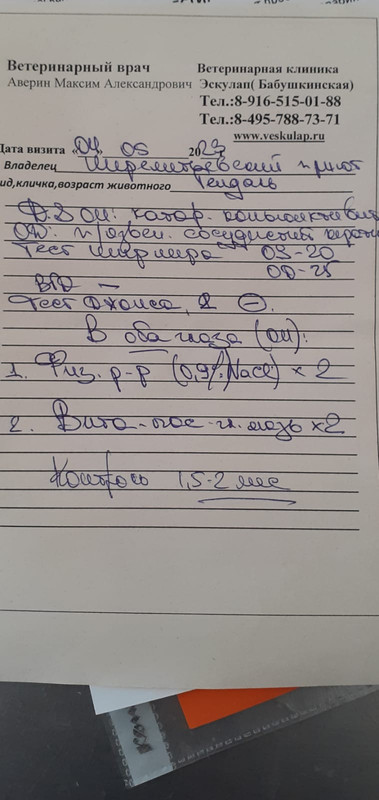 Ветеринарный врач
Аверин Максим Александрович
Ветеринарная клиника
Эскулап( Бабушкинская)
Тел.:8-916-515-01-88
Тел.:8-495-788-73-71
www.veskulap.ru
Дата визита „04„ 05 2023
Владелец Шереметьевский приют
ид,кличка,возраст животного Гендаль
D.S OU: катар. конъюнктивит
OD: п/язвен. сосудистый
Тест Ширмера OS-20
OD-25
ВГД —
Тест Джонса, 2 ⊖.
В оба глаза (OU):
1. Физ. р-р (0,9% NaCl) x 2
2. Вита-пос-гл. мазь x2
Контроль 1,5-2 мес